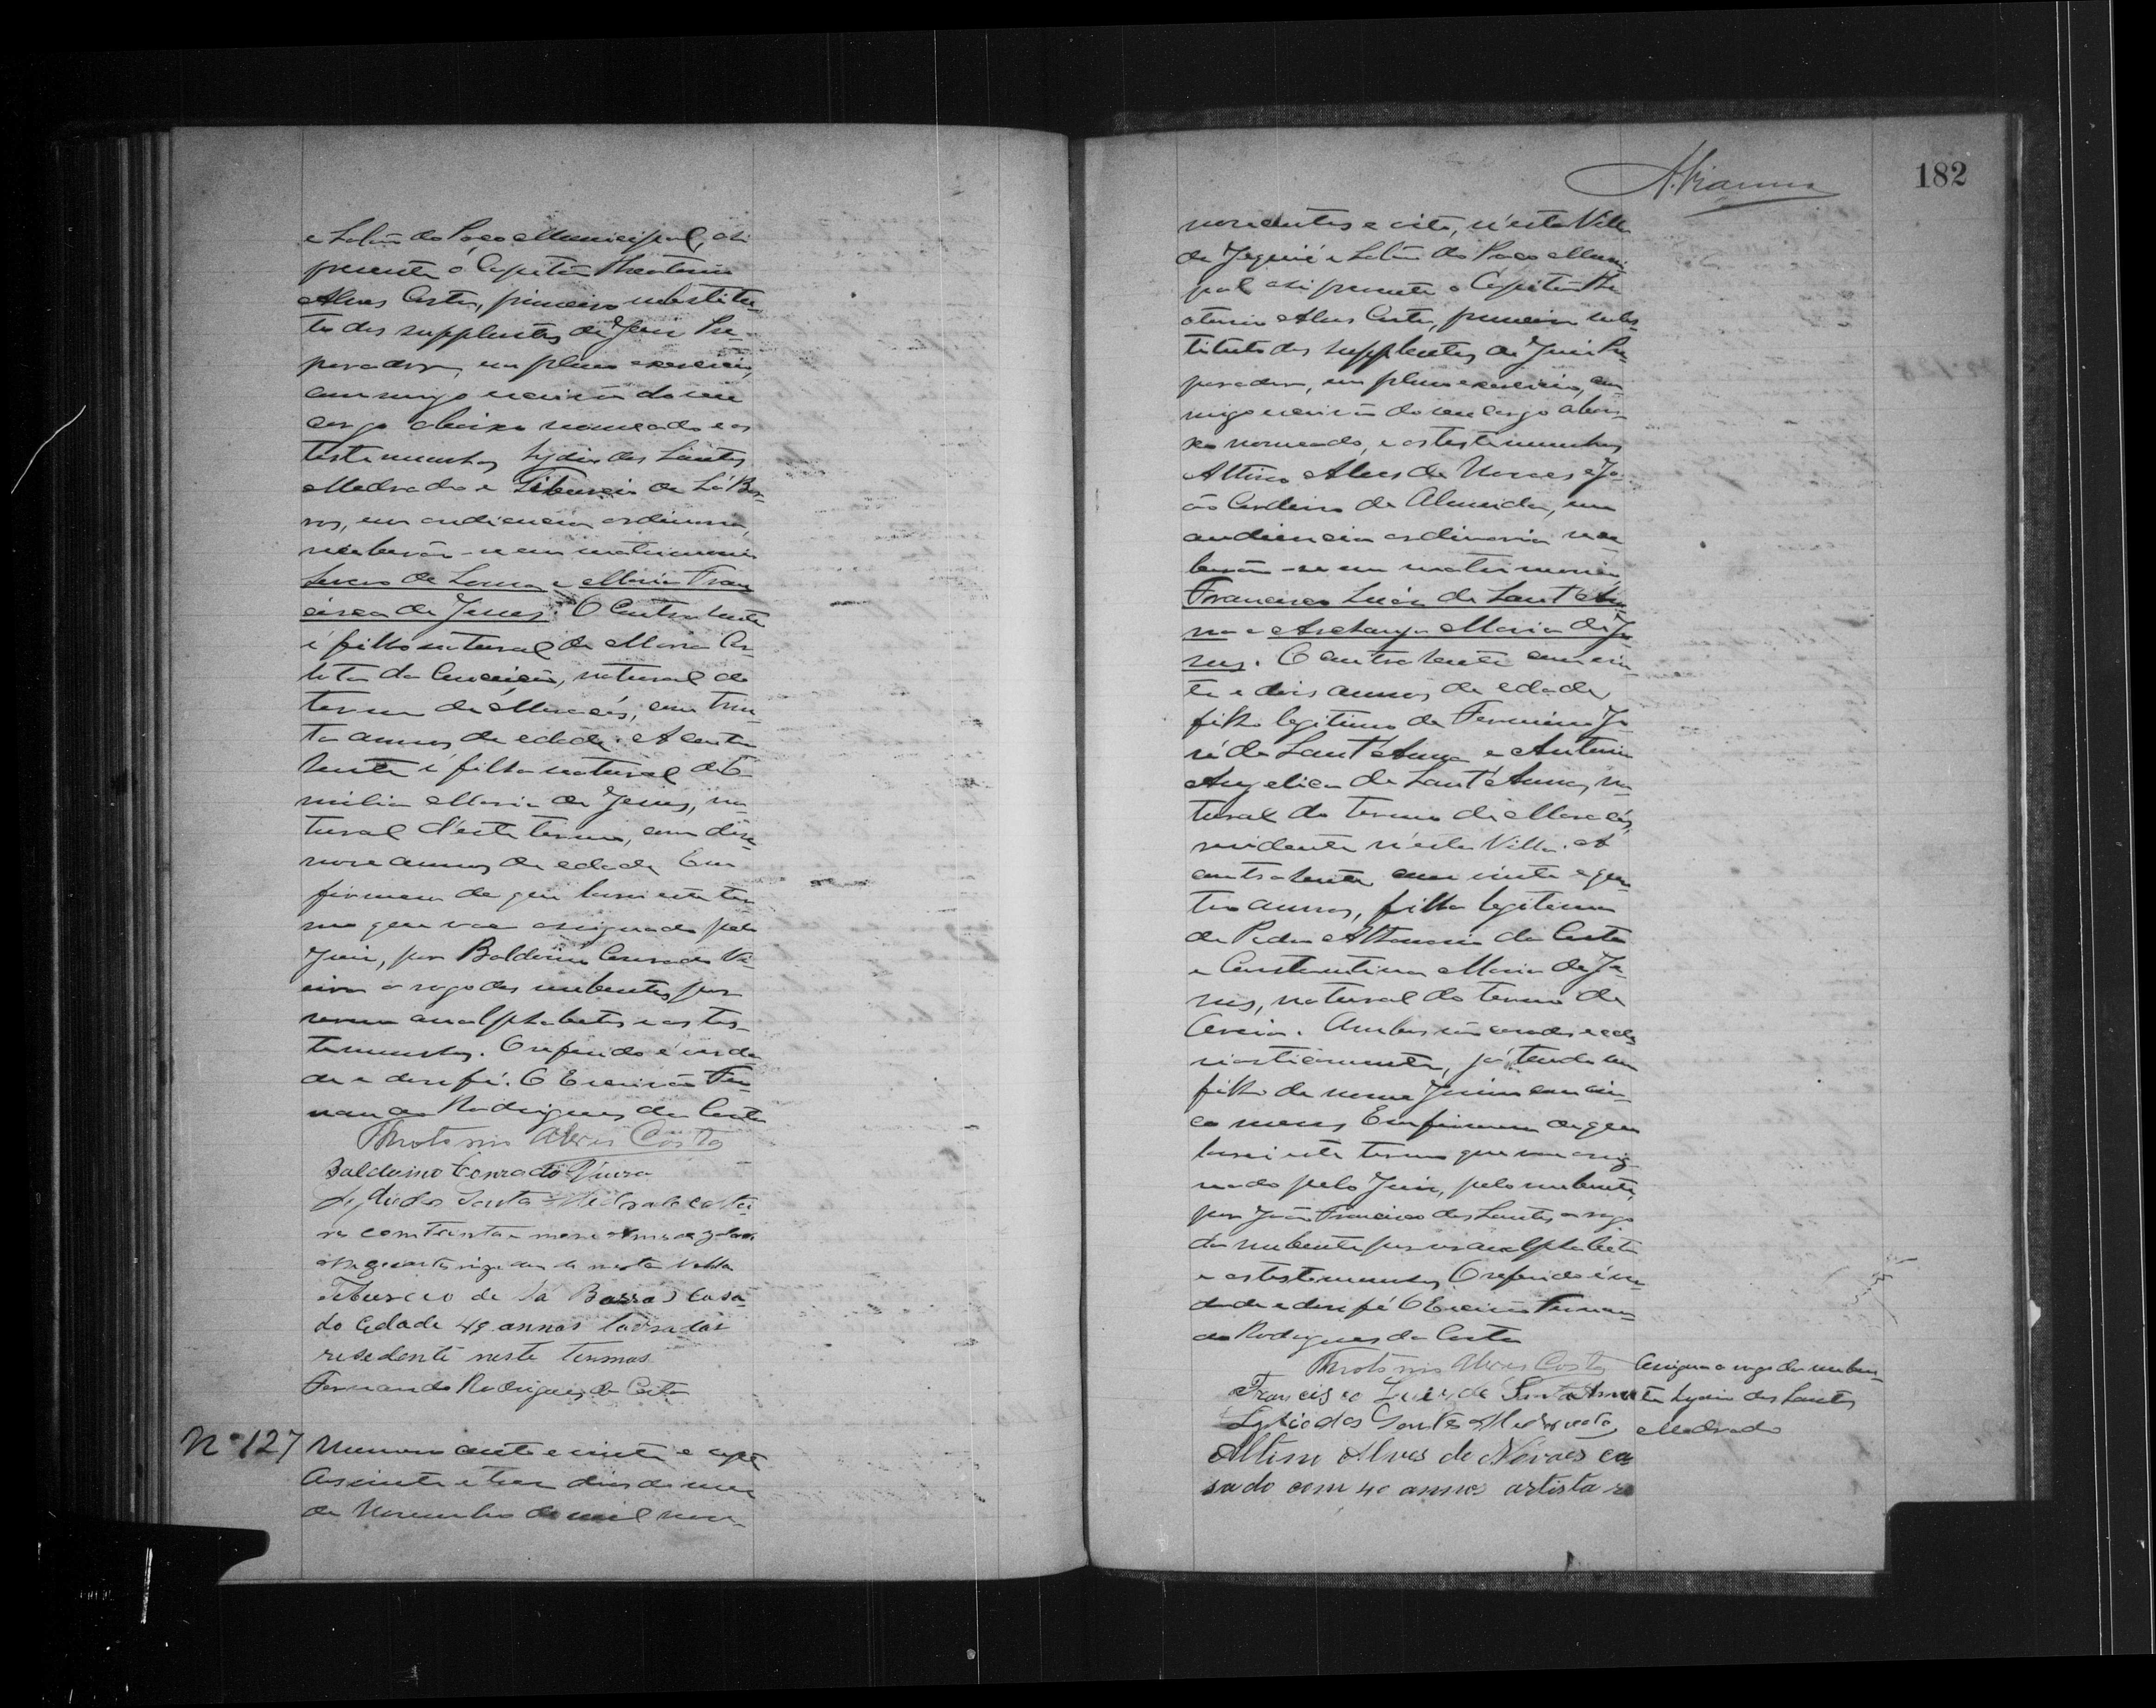 e Salão do Paço Municipal, ahi
presente o Capitão Theotonio
Alves Costa, primeiro substitu-
to dos supplentes de Juiz Pre-
parador, em pleno exercicio,
commigo escrivão do seu
cargo abaixo nomeado e as
testemunhas Lydio dos Santos
Medrado e Tiburcio de Sá Bar-
ros, em audiencia ordinaria,
receberão-se em matrimonio
de Souza e Maria Fran-
cisca de Jesus. O Contrahente
é filho natural de Maria Car-
lota da Conceição, natural do
termo de Maracás, com trin-
ta annos de edade. A contra-
hente é filha natural de E-
milia Maria de Jesus, na-
tural d'este termo, com dese-
nove annos de edade. Em
firmesa do que lavrei este ter-
mo que vae assignado pelo
Juiz, por Balduino Conrado Vi-
eira a rogo dos nubentes por
serem analphabetos e as tes-
temunhas. O referido é verda-
de e dou fé. O Escrivão Fer-
nando Rodrigues da Costa
Theotonio Alves Costa
Balduino Conrado Vieira
Lydio dos Santos Medrado
com trinta e nove annos
residente nesta Villa
Tiburcio de Sá Barros Casa-
do Edade 49 annos lavrador
resedente neste termos
Fernando Rodrigues da Costa
Nº 127
Numero cento e vinte e sete
Aos vinte e tres dias do mez
de Novembro de mil nove-
A. Vianna
182
novecentos e oito, n'esta Villa
de Jequié e Salão do Paço Munici-
pal ahi presente o Capitão The-
otonio Alves Costa, primeiro subs-
tituto dos supplentes de Juiz Pre-
parador, em pleno exercicio, com-
migo escrivão do seu cargo abai-
xo nomeado, e as testemunhas
Altino Alves de Novaes e Jo-
ão Cordeiro de Almeida, em
audiencia ordinaria rece-
berão-se em matrimonio,
Francisco Luiz de Sant'An-
na e Archanja Maria de Je-
sus. O contrahente com vin-
te e dois annos de edade,
filho legitimo de Fermino Jo-
sé de Sant'Anna e Antonia
Angelica de Sant'Anna, na-
tural do termo de Maracás,
residente n'esta Villa. A
contrahente com vinte e qua-
tro annos, filha legitima
de Pedro Athanasio da Costa
e Constantina Maria de Je-
sus, natural do termo de
Areia. Ambos são casados eccle-
siasticamente, já tendo um
filho de nome com cin-
co meses. Em firmesa do que
lavrei este termo que vae assig-
nado pelo Juiz, pelo nubente,
por João Francisco dos Santos a rogo
da nubente por ser analphabeta
e as testemunhas. O referido é ver-
dade e dou fé. O Escrivão Fernan-
do Rodrigues da Costa
Theotonio Alves Costa
Francisco Luiz de Santa Anna
Lydio dos Santos Medrado
Altino Alves de Novaes ca-
sado com 40 annos artista re
Assignou a rogo da nuben-
te Lydio dos Santos
Medrado